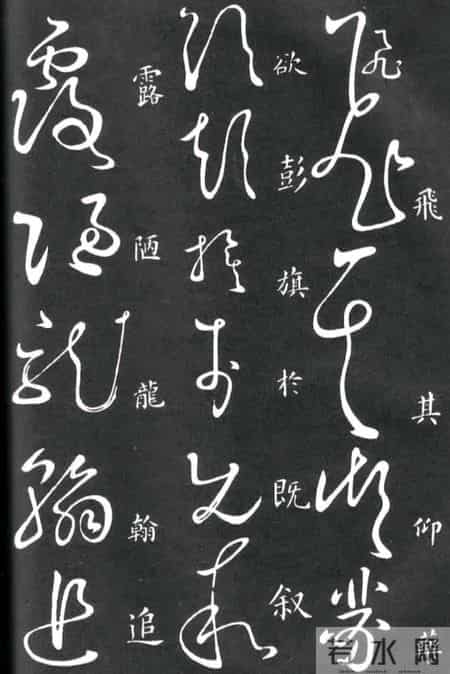 飛其仰
欲彭旗於既叙
露陋龍翰追
若水